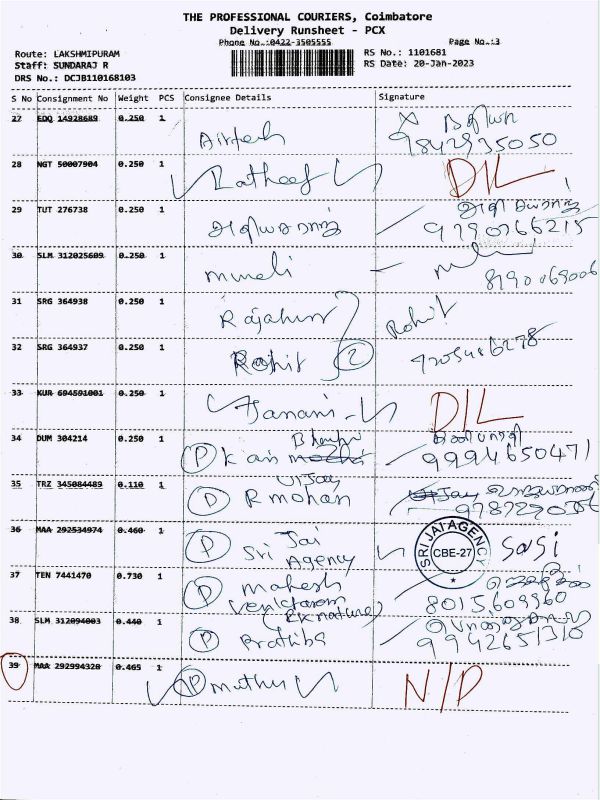 THE PROFESSIONAL COURIERS, Coimbatore
Delivery Runsheet - PCX
Phone No.:0422-3505555
Page No.:3
Route: LAKSHMIPURAM
Staff: SUNDARAJ R
DRS No.: DCJB110168103
RS No.: 1101681
RS Date: 20-Jan-2023
S No Consignment No Weight PCS Consignee Details Signature
27 EDQ 14928689 0.250 1 Airtech 9842935050
28 NGT 50007904 0.250 1 Latheef D/L
29 TUT 276738 0.250 1 9790766215
30 SLM 312025609 0.250 1 murali 8190069006
31 SRG 364938 0.250 1 Rohit
32 SRG 364937 0.250 1 Rohit 2
33 KUR 694591001 0.250 1 Janani D/L
34 DUM 304214 0.250 1 P 9994650471
35 TRZ 345084489 0.110 1 P Vijay
R mohan
36 MAA 292534974 0.460 1 P Sri Jai
Agency SRI JAI AGENCY CBE-27 Sasi
37 TEN 7441470 0.730 1 P Mahesh
Venkataram 8015609960
38 SLM 312094003 0.440 1 P Prathiba 9942651310
39 MAA 292994320 0.465 1 P muthu N/P